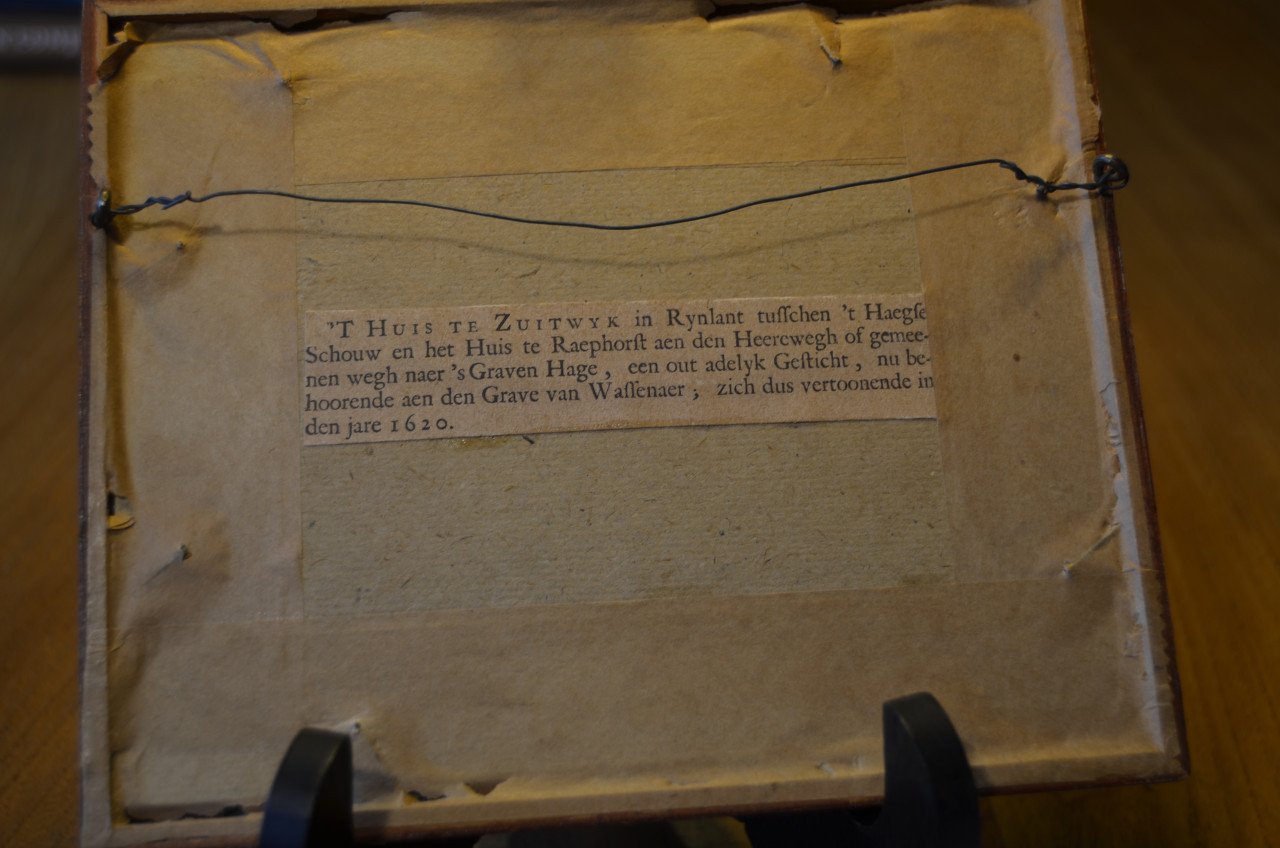 'T HUIS TE ZUITWYK in Rynlant tuſſchen 't Haegſe
Schouw en het Huis te Raephorſt aen den Heerewegh of gemee-
nen wegh naer 's Graven Hage, een out adelyk Geſticht, nu be-
hoorende aen den Grave van Waſſenaer; zich dus vertoonende in
den jare 1620.